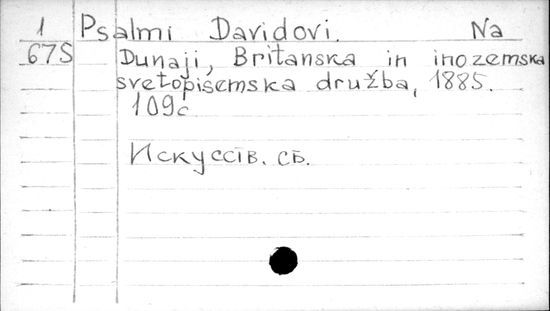 1 Psalmi Davidovi. Na
67S Dunaji, Britanska in inozemska
svetopisemska družba, 1885.
109c
Искусств. сб.